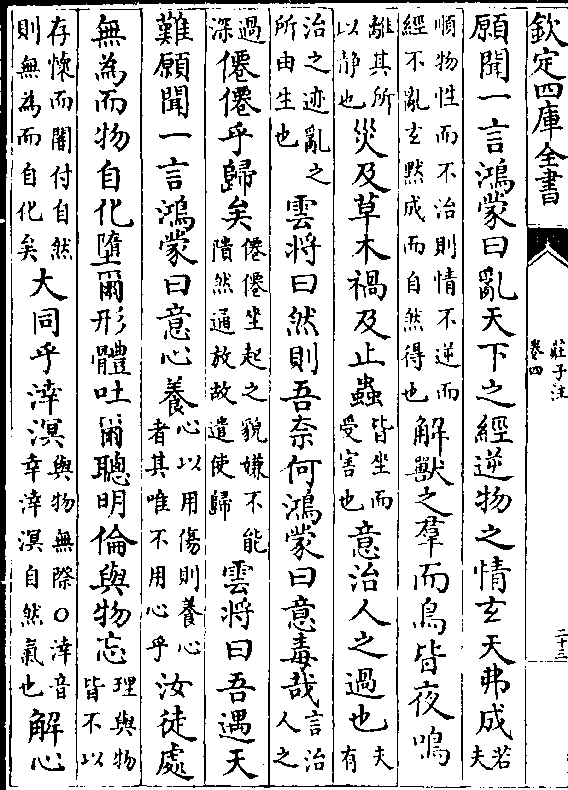 欽定四庫全書
莊子注
卷四
二十三
願聞一言鴻蒙曰亂天下之經逆物之情玄天弗成若夫
順物性而不治則情不逆而
經不亂玄默成而自然得也
解獸之羣而鳥皆夜鳴
離其所
以静也
災及草木禍及止蟲
皆坐而
受害也
意治人之過也
夫有
治之迹亂之
所由生也
雲將曰然則吾奈何鴻蒙曰意毒哉
言治人之
過深
僊僊乎歸矣
僊僊坐起之貌嫌不能
隤然通放故遣使歸
雲將曰吾遇天
難願聞一言鴻蒙曰意心養
心以用傷則養心
者其唯不用心乎
汝徒處
無為而物自化墮爾形體吐爾聰明倫與物忘
理與物
皆不以
存懷而闇付自然
則無為而自化矣
大同乎涬溟
與物無際○涬音
幸涬溟自然氣也
解心